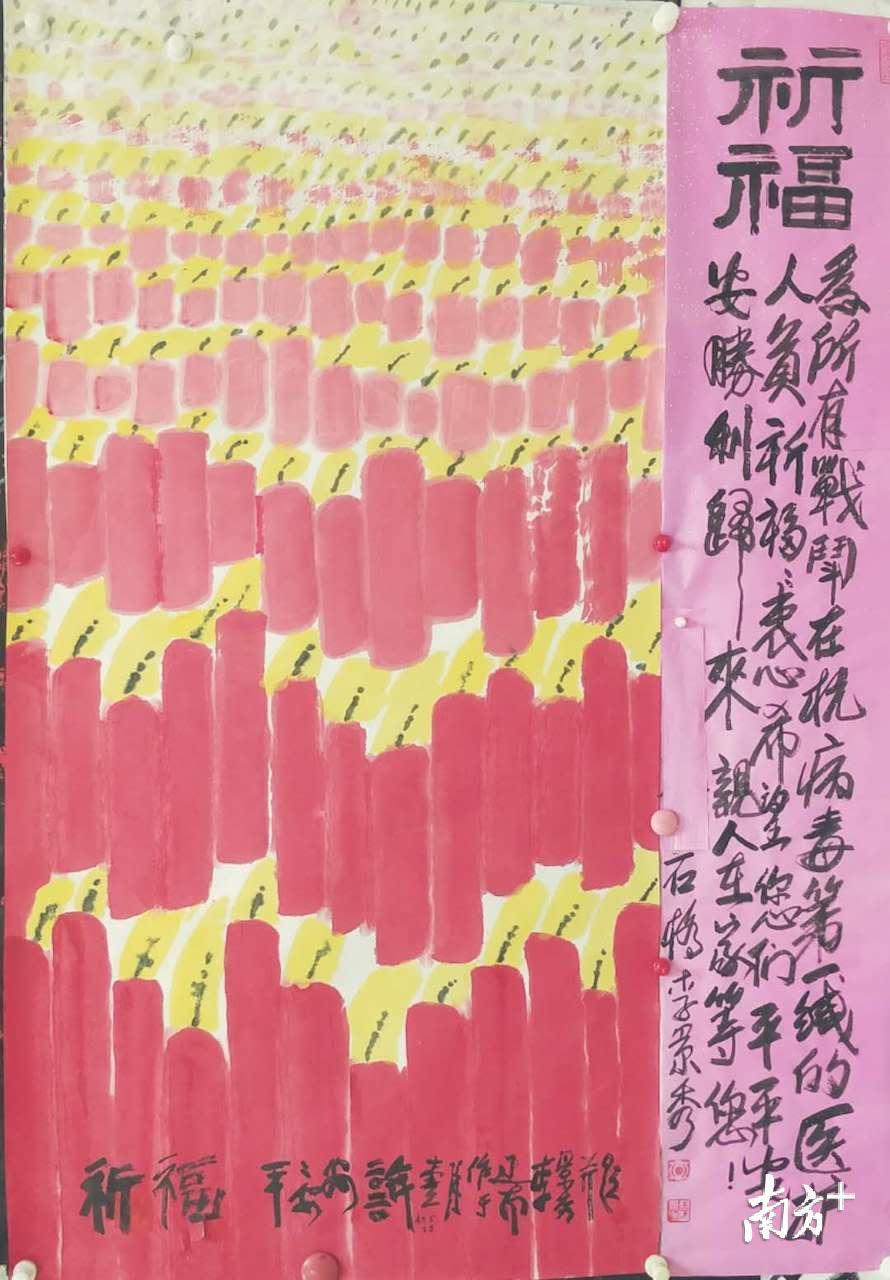 祈福
為所有戰鬥在抗病毒第一綫的医护
人員祈福衷心希望您们平平安
安勝利歸來 親人在家等您！
石橋李景秀
祈福 平安
南方+